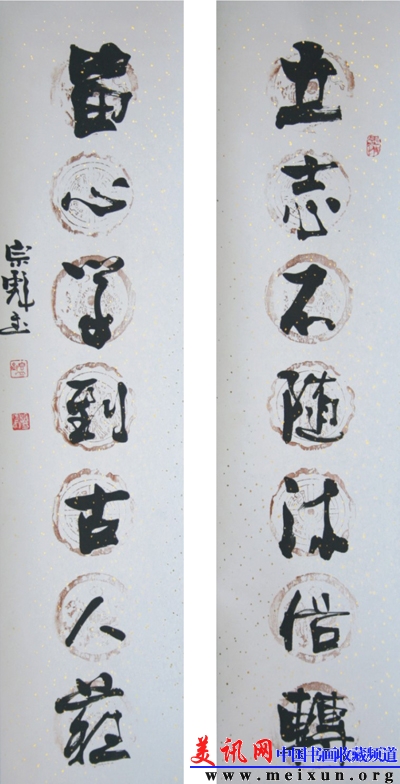 立志不随流俗轉
留心学到古人難
宗
美讯网 中国书画收藏频道
www.meixun.org